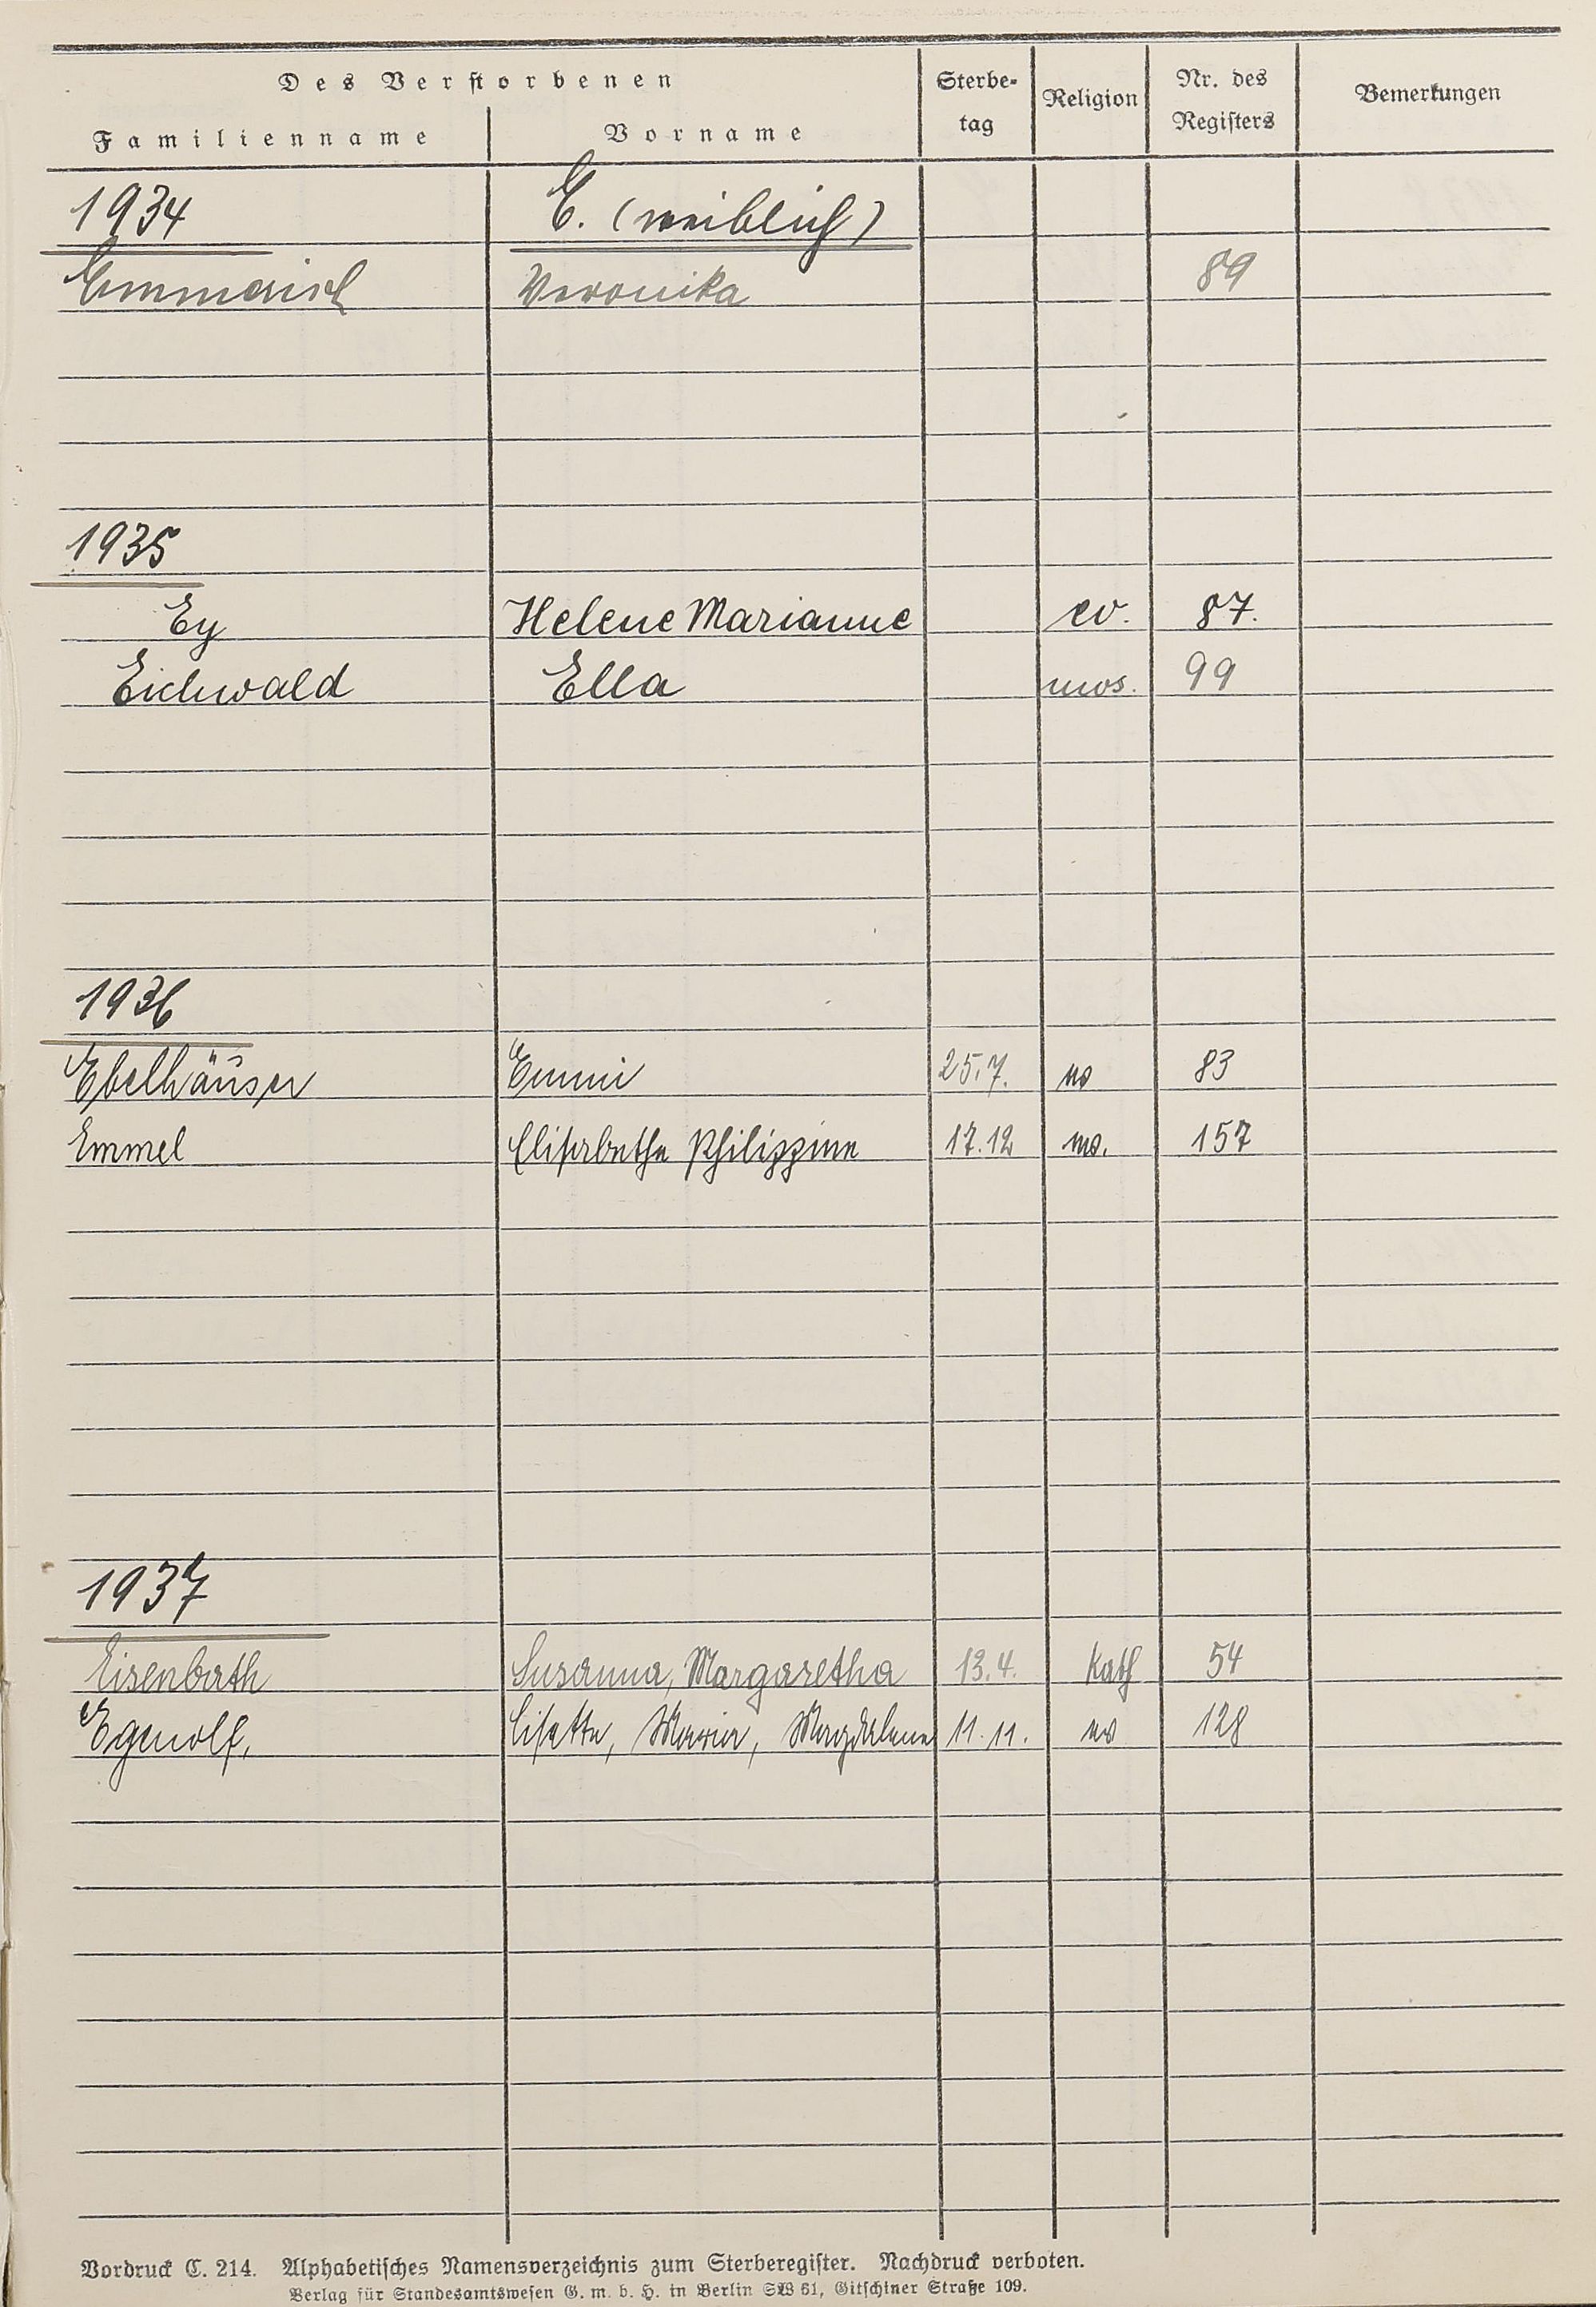 Des Verstorbenen
Familienname Vorname Sterbe-tag Religion Nr. des Registers Bemerkungen
1934 E. (weiblich)
Veronika 89
1935
Ey Helene Marianne ev. 87.
Eichwald Ella mos. 99
1936
Ebelhäuser Emmi 25.7. ev 83
Emmel Elisabetha Philippine 17.12 ev. 157
1937
Eisenbarth Susanna, Margaretha 13.4. kath 54
Egenolf, Lisette, Maria, Magdalena 11.11. ev 128
Vordruck C. 214. Alphabetisches Namensverzeichnis zum Sterberegister. Nachdruck verboten.
Verlag für Standesamtswesen G. m. b. H. in Berlin SW 61, Gitschiner Straße 109.